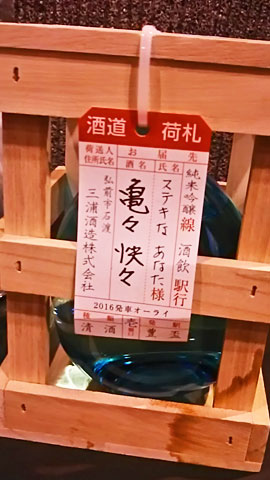 酒道 荷札
荷送人
住所氏名
お届先
酒名
氏名
純米吟醸線 酒飲駅行
ステキな あなた様
亀々快々
弘前市石渡
三浦酒造株式会社
2016発車オーライ
清酒壱